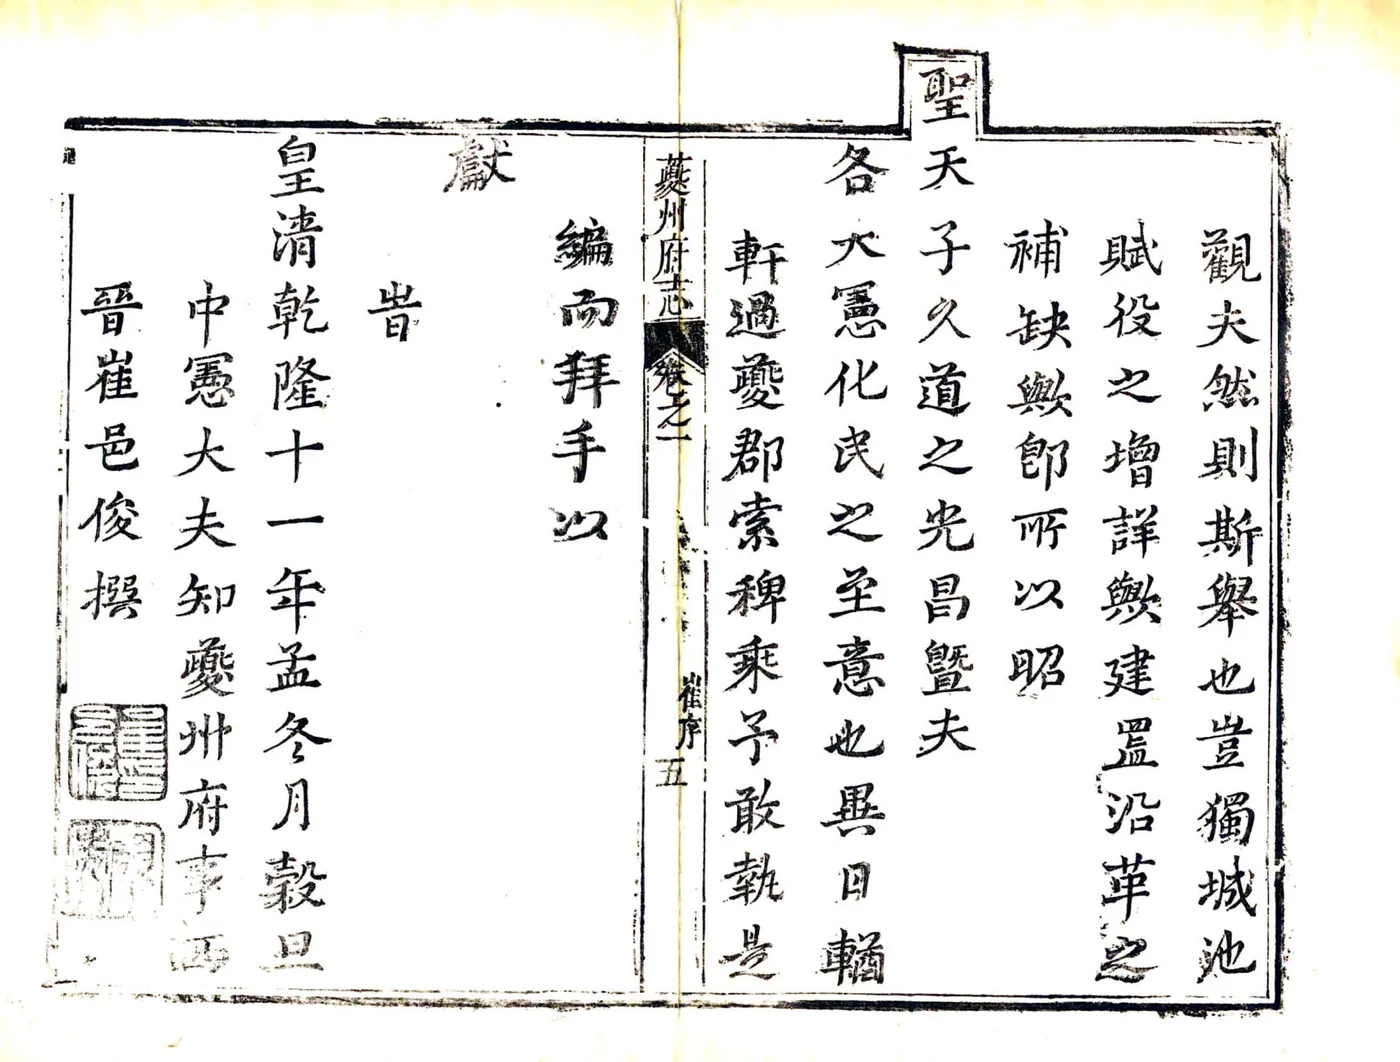 觀夫然則斯舉也豈獨城池
賦役之增詳歟建置沿革之
補缺歟卽所以昭
聖天子久道之光昌曁夫
各大憲化民之至意也異日輶
軒過夔郡索稗乘予敢執是
夔州府志
卷之一
崔序
五
編而拜手以
獻
旹
皇清乾隆十一年孟冬月穀旦
中憲大夫知夔州府事西
晉崔邑俊撰